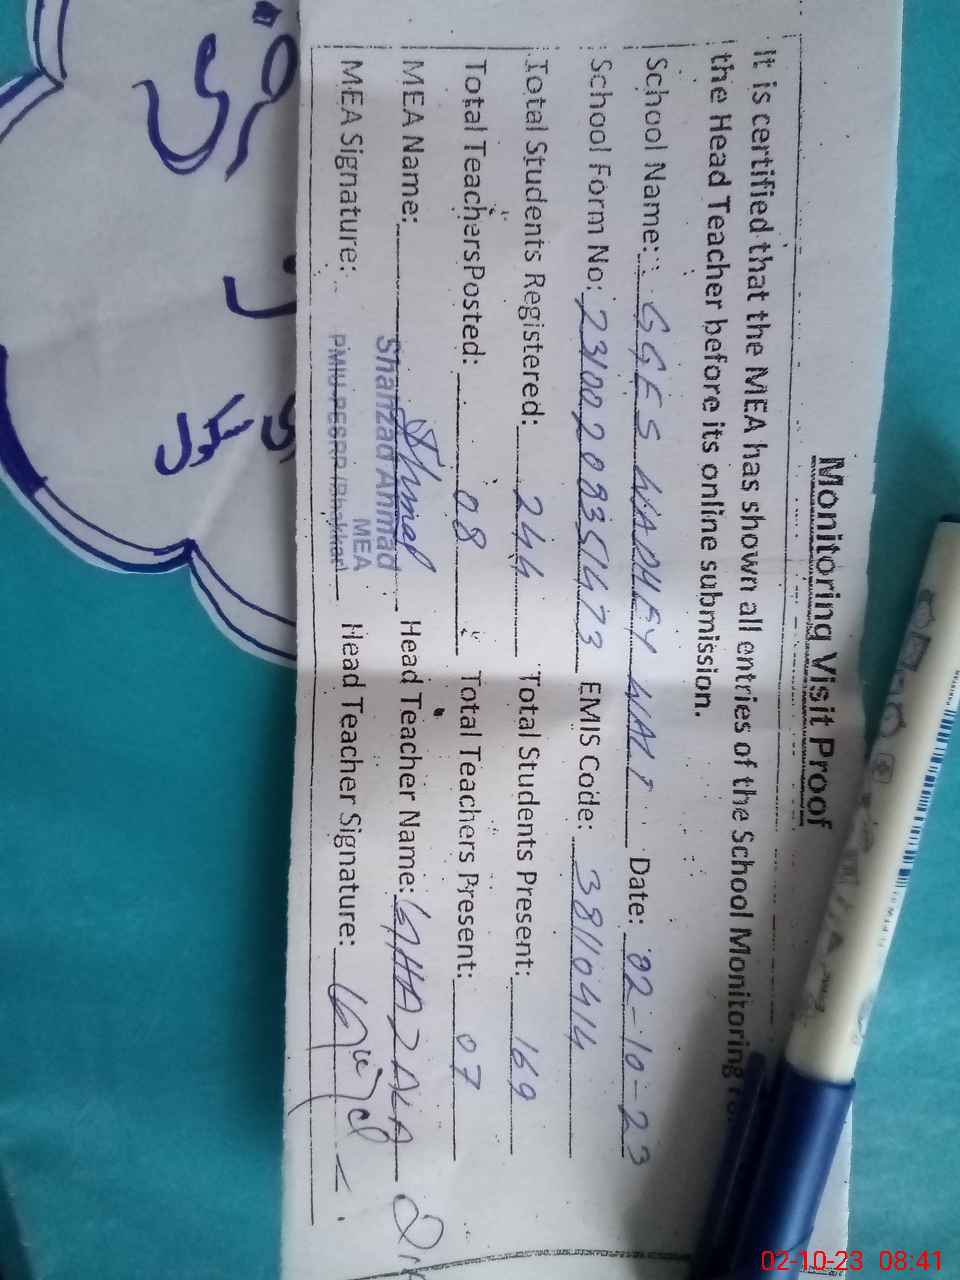 Monitoring Visit Proof
It is certified that the MEA has shown all entries of the School Monitoring
the Head Teacher before its online submission.
School Name: GGES WADHEY WALI Date: 02-10-23
School Form No: 23100208351473 EMIS Code: 38110414
Total Students Registered: 244 Total Students Present: 169
Total TeachersPosted: 08 Total Teachers Present: 07
MEA Name: Ahmed Head Teacher Name: GHAZALA
Shahzad Ahmad
MEA
MEA Signature: PMIU-PESRP (Bhakkar) Head Teacher Signature:
02-10-23 08:41